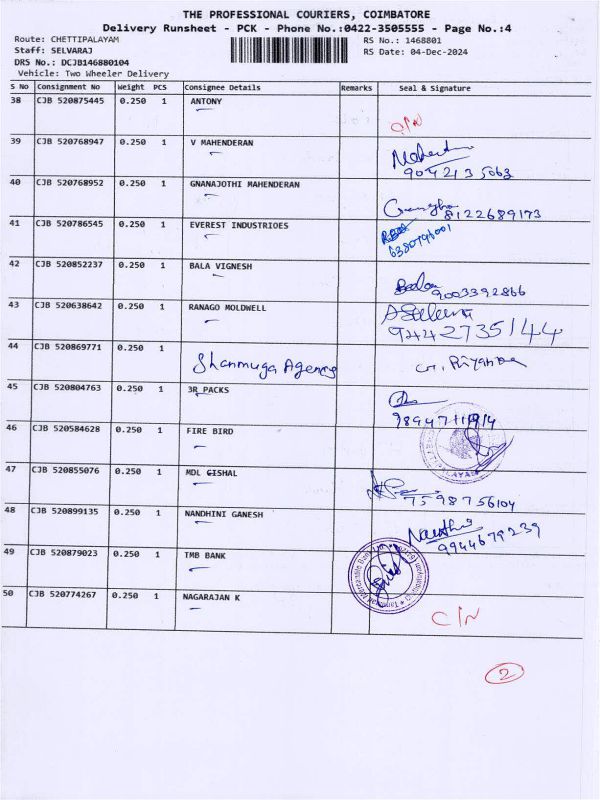 THE PROFESSIONAL COURIERS, COIMBATORE
Delivery Runsheet - PCK - Phone No.:0422-3505555 - Page No.:4
Route: CHETTIPALAYAM RS No.: 1468801
Staff: SELVARAJ RS Date: 04-Dec-2024
DRS No.: DCJB146880104
Vehicle: Two Wheeler Delivery
S No Consignment No Weight PCS Consignee Details Remarks Seal & Signature
38 CJB 520875445 0.250 1 ANTONY
C/N
39 CJB 520768947 0.250 1 V MAHENDERAN
9042135063
40 CJB 520768952 0.250 1 GNANAJOTHI MAHENDERAN
8122689173
41 CJB 520786545 0.250 1 EVEREST INDUSTRIOES
6380796001
42 CJB 520852237 0.250 1 BALA VIGNESH
9003392866
43 CJB 520638642 0.250 1 RANAGO MOLDWELL
9442735144
44 CJB 520869771 0.250 1 Shanmuga Agency
45 CJB 520804763 0.250 1 3R PACKS
46 CJB 520584628 0.250 1 FIRE BIRD
47 CJB 520855076 0.250 1 MDL GISHAL
7598756104
48 CJB 520899135 0.250 1 NANDHINI GANESH
9944679239
49 CJB 520879023 0.250 1 TMB BANK
50 CJB 520774267 0.250 1 NAGARAJAN K
C/N
2